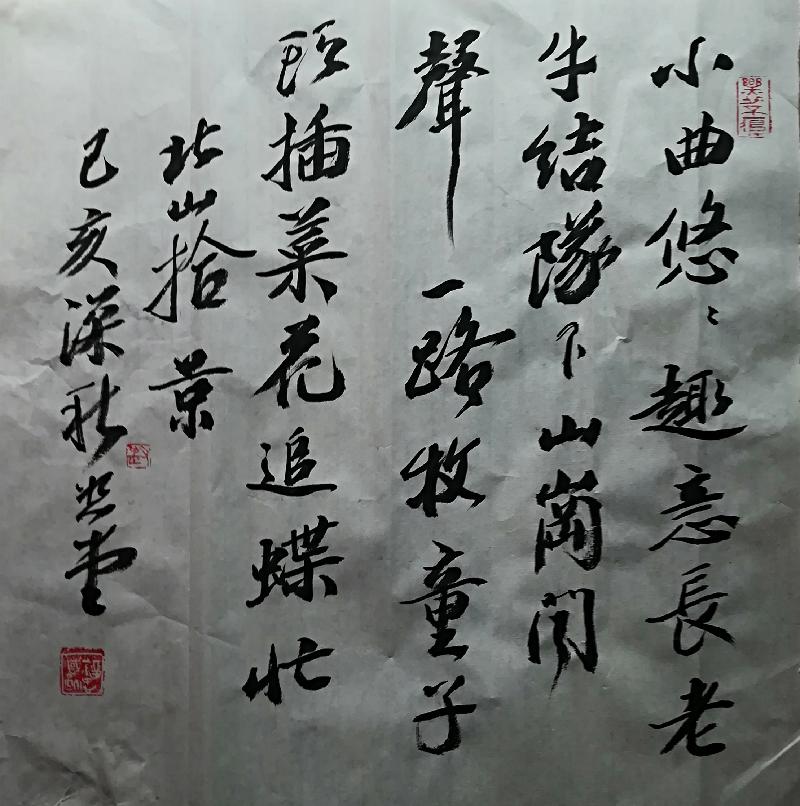 小曲悠〻趣意長老
牛结隊下山崗闻
聲一路牧童子
頭插菜花追蝶忙
北山拾景
己亥深秋